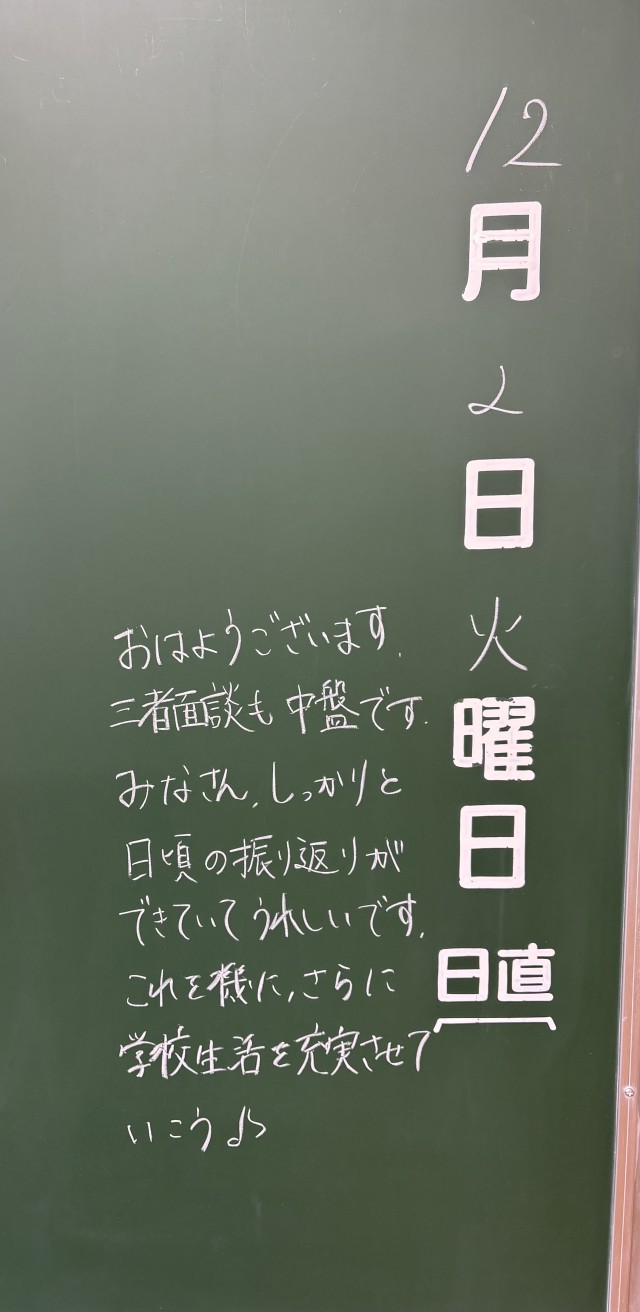 12月2日火曜日
日直
おはようございます.
三者面談も中盤です.
みなさん,しっかりと
日頃の振り返りが
できていてうれしいです.
これを機に,さらに
学校生活を充実させて
いこう♪